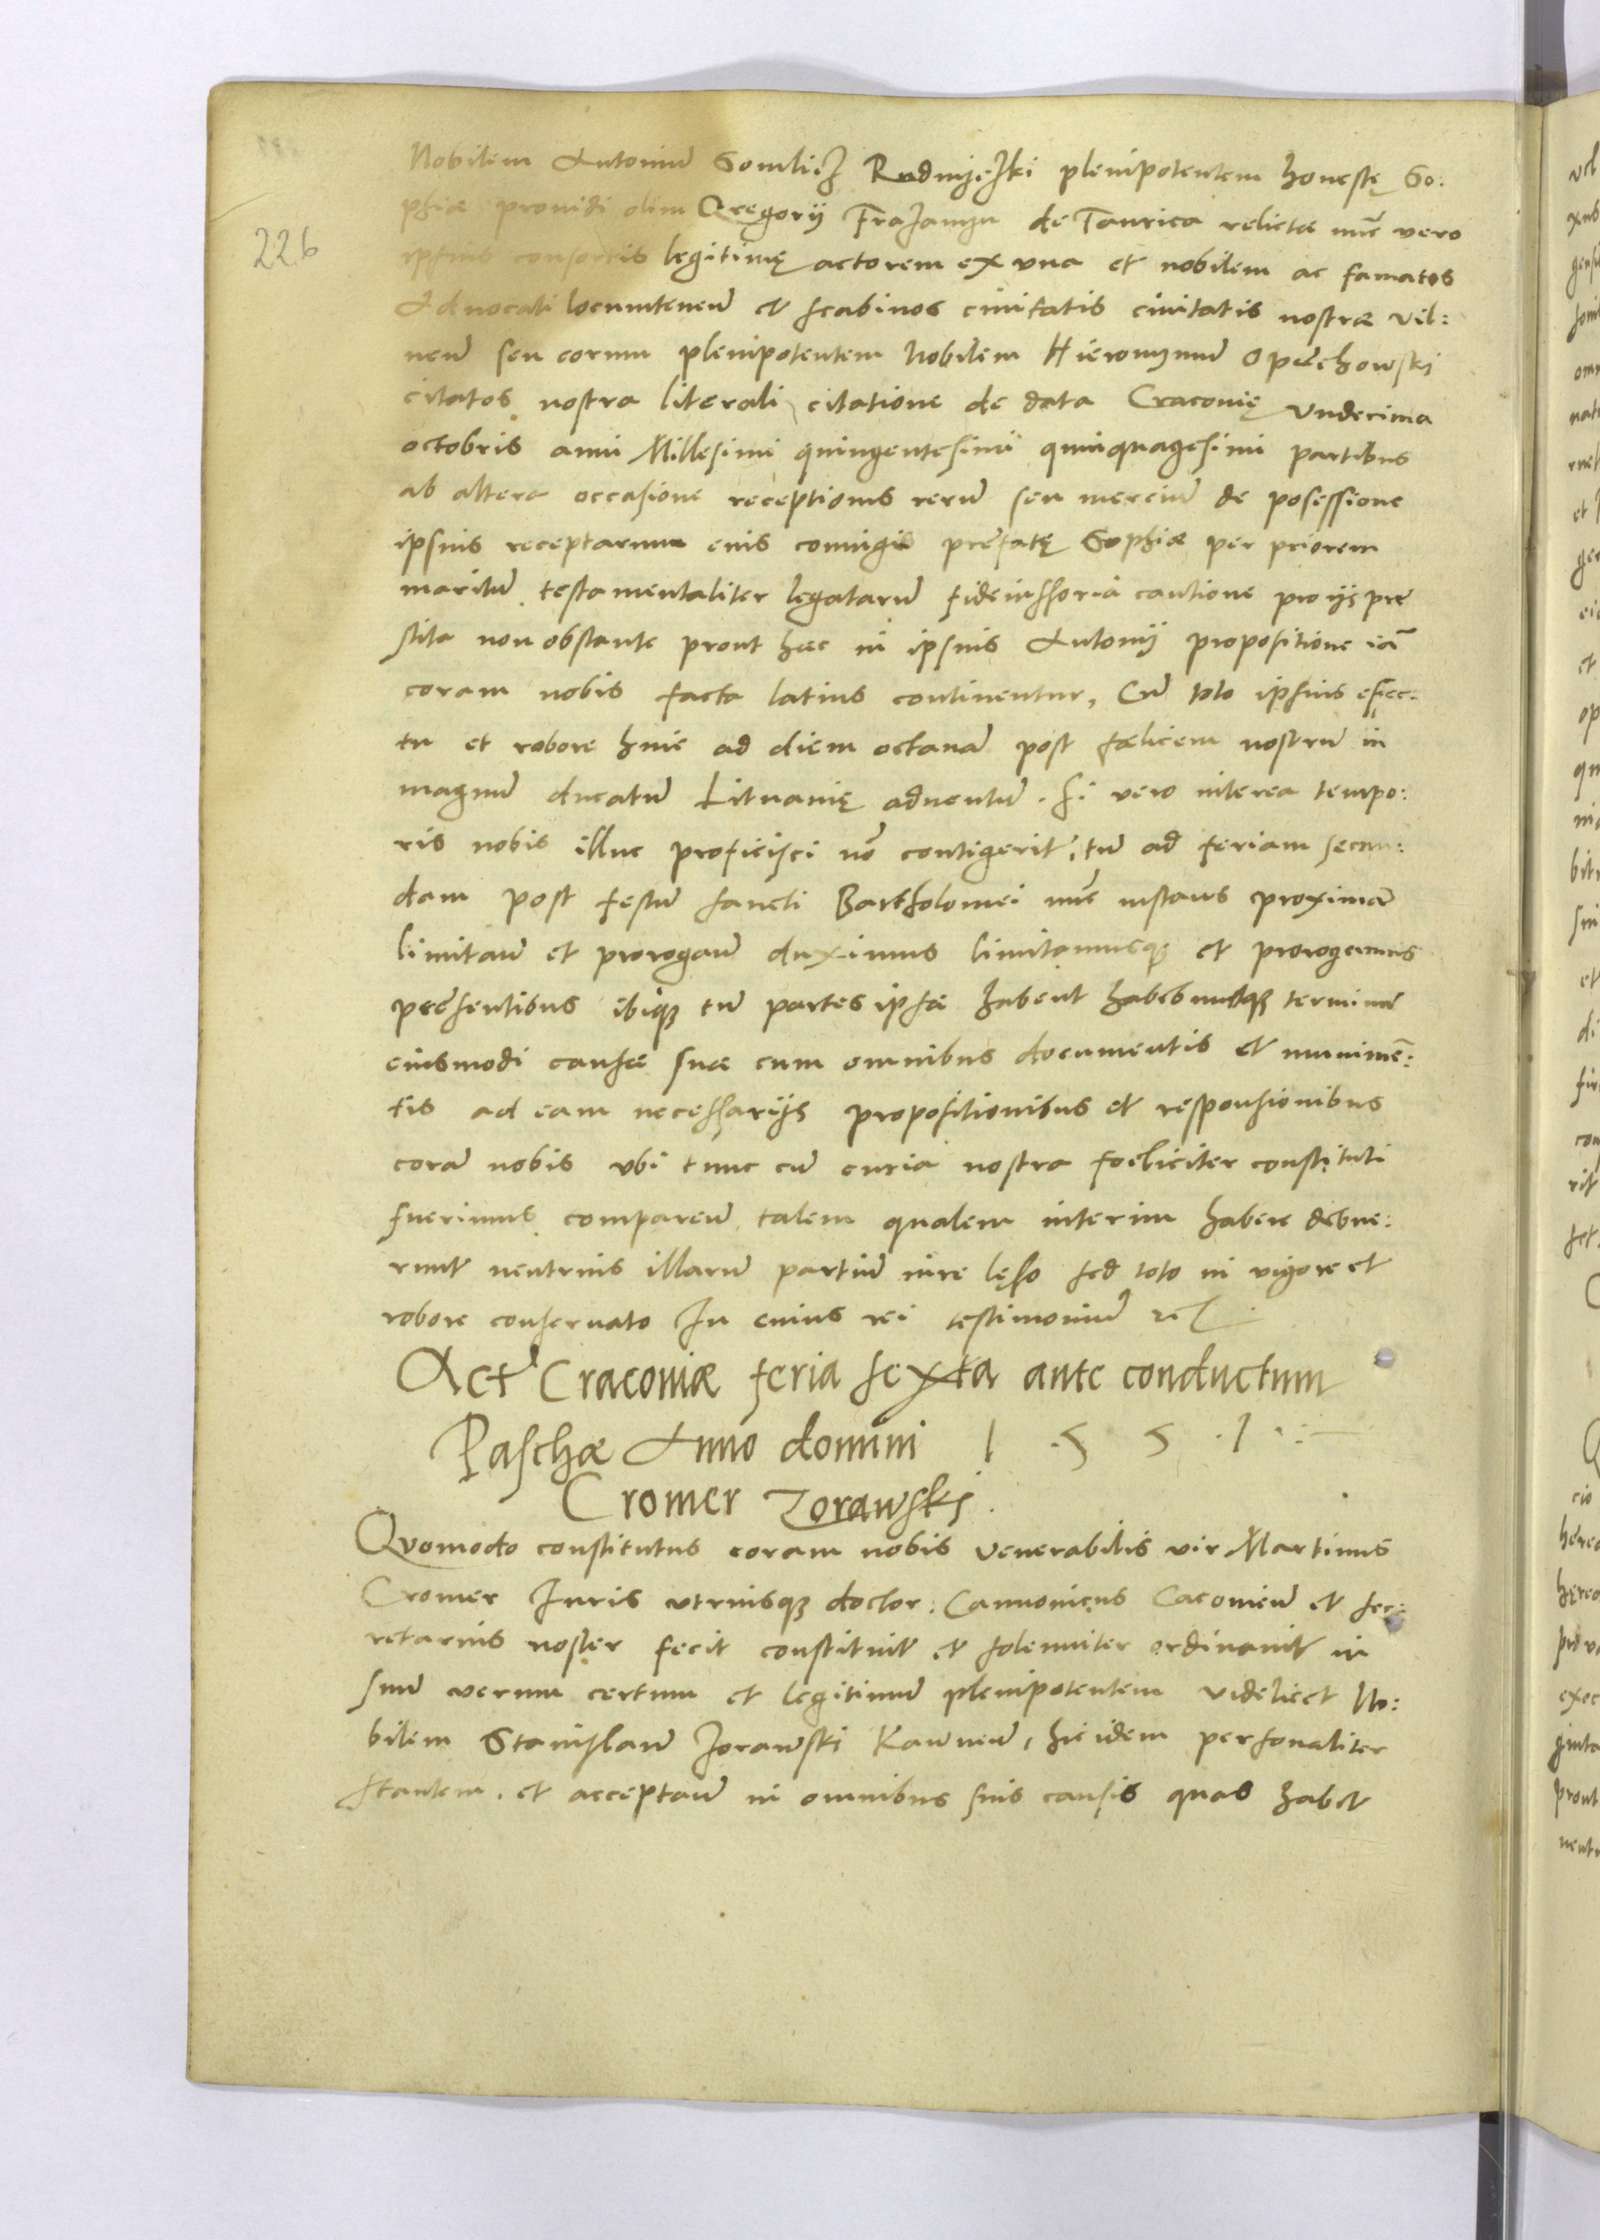 226
Nobilem Antoniũ Gomlicz Rudniczki plenipotentem honestę So:
phiæ providi olim Gregorij de Taurica relictæ nũc vero
ipsius consortis legitimę actorem ex vna et nobilem ac famatos
Advocati locumteneñ et scabinos ciuitatis ciuitatis nostræ Vil:
neñ seu eorum plenipotentem Nobilem Hieronymum Opiechowski
citatos nostra literali citatione de data Craconię vndecima
octobris anni Millesimi quingentesimi quinquagesimi partibus
ab altera occasione receptionis rerũ seu merciũ de posessione
ipsius receptarum eius coniugi prefatę Sophiæ per priorem
maritũ testamentaliter legatarũ fideiussoria cautione pro ijs pre
stita non obstante prout hæc in ipsius Antonij propositione iã
coram nobis facta latius continentur, Cũ toto ipsius efec:
tu et robore huic ad diem octavã post fælicem nostrũ in
magnũ ducatũ Lituanię aduentũ. Si vero interea tempo:
ris nobis illuc proficisci nõ contigerit, tũ ad feriam secun:
dam post festũ sancti Bartholomei nũc instans proximã
limitañ et prorogañ duximus limitamusq; et prorogamus
præsentibus ibiq; tũ partes ipsæ habent habebuntq; terminũ
eiusmodi causæ suæ cum omnibus documentis et munimẽ:
tis ad eam necessarijs propositionibus et responsionibus
corã nobis vbi tunc cũ curia nostra foeliciter constituti
fuerimus compareñ talem qualem interim habere debue:
runt neutrius illarũ partiũ iure lęso sed toto in vigore et
robore conseruato In cuius rei testimoniũ etc
Act Craconiæ feria sexta ante conductum
Paschæ Anno domini 1 . 5 5 . 1
Cromer Zorawski
Quomodo constitutus coram nobis venerabilis vir Martinus
Cromer Iuris vtriusq; doctor. Cannonicus Cacouieñ et sec:
retarius noster fecit constituit et solemniter ordinauit in
suũ verum certum et legitimũ plenipotentem videlicet No:
bilem Stanislaũ Zorawski Kawneñ, hic idem personaliter
stantem. et acceptañ in omnibus suis causis quas habet